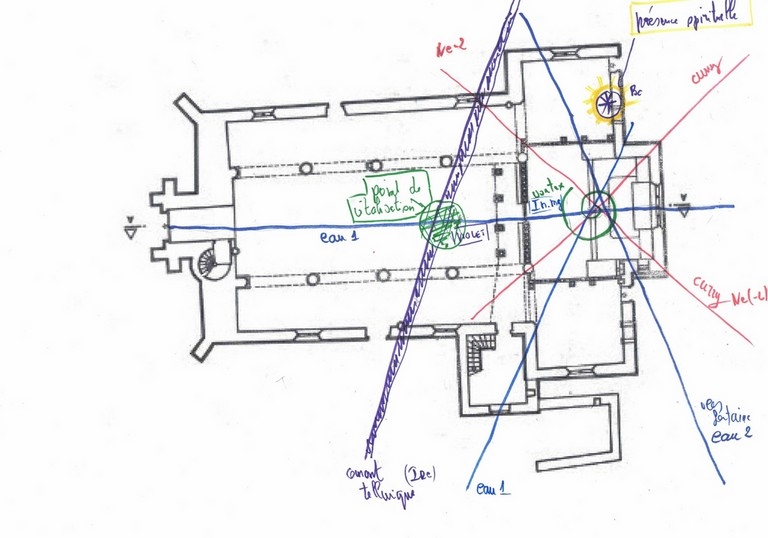 présence spirituelle
Ne-2
curry
point de
vitalisation
VIOLET
eau 1
vortex
curry Ne(-2)
vers
fontaine
eau 2
courant (IRe)
tellurique
eau 1